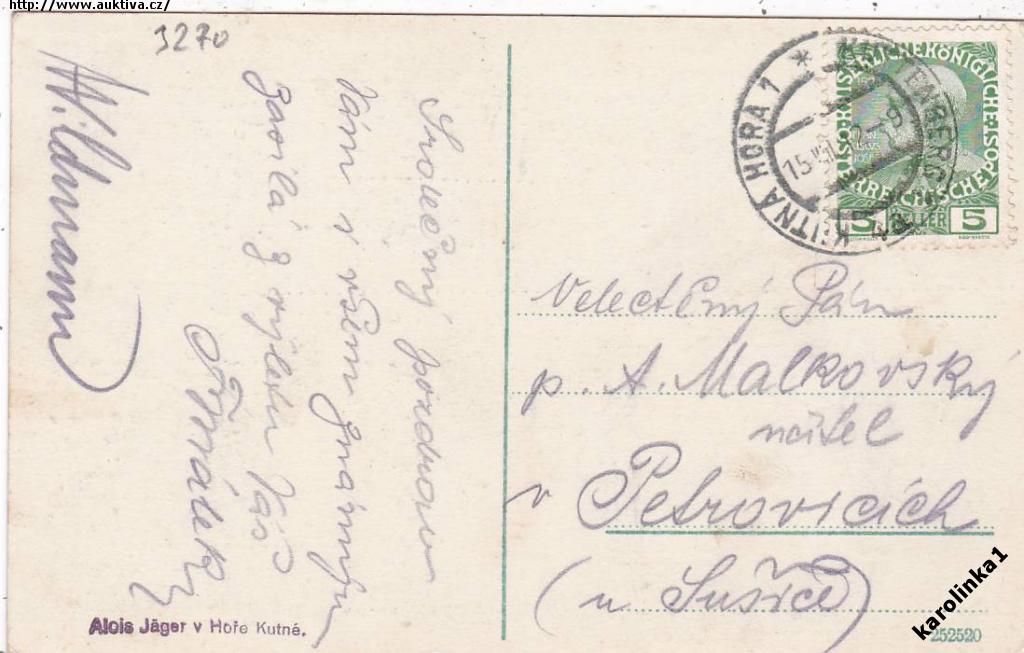 http://www.auktiva.cz/
3270
Srdečný pozdrav
Vám i všem známým
zasílá z výletu Váš
A. Wildmann
Alois Jäger v Hoře Kutné.
KUTNÁ HORA 1 * KUTTENBERG
15 VIII
ÖSTERREICHISCHE
KAISERLICHE KÖNIGLICHE
5 HELLER 5
Velectěný Pán
p. A. Malkovský
učitel
v Petrovicích
(u Sušice)
252520
karolinka1